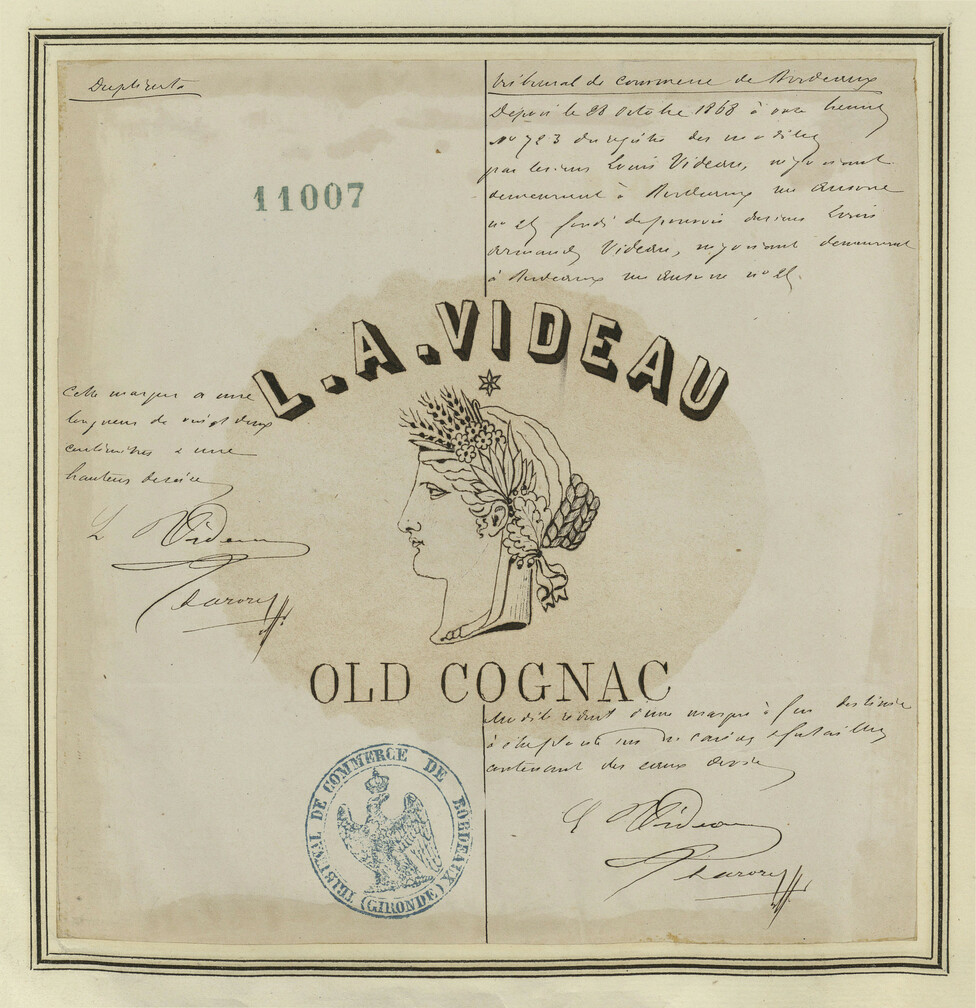 Duplicata
Tribunal de commerce de Bordeaux
Déposé le 28 octobre 1868 à onze heures
nº 723 du registre des modèles
par le sieur Louis Videau, négociant
demeurant à Bordeaux rue Ausone
nº 21 fondé de pouvoir du sieur Louis
Armand Videau, négociant demeurant
à Bordeaux rue Ausone nº 21.
11007
L.A.VIDEAU
Cette marque a une
longueur de vingt deux
centimètres & une
hauteur de
L Videau
OLD COGNAC
Modèle réduit d'une marque à feu destinée
à être sur des caisses & futailles
contenant des eaux de vie
L Videau
TRIBUNAL DE COMMERCE DE BORDEAUX (GIRONDE)